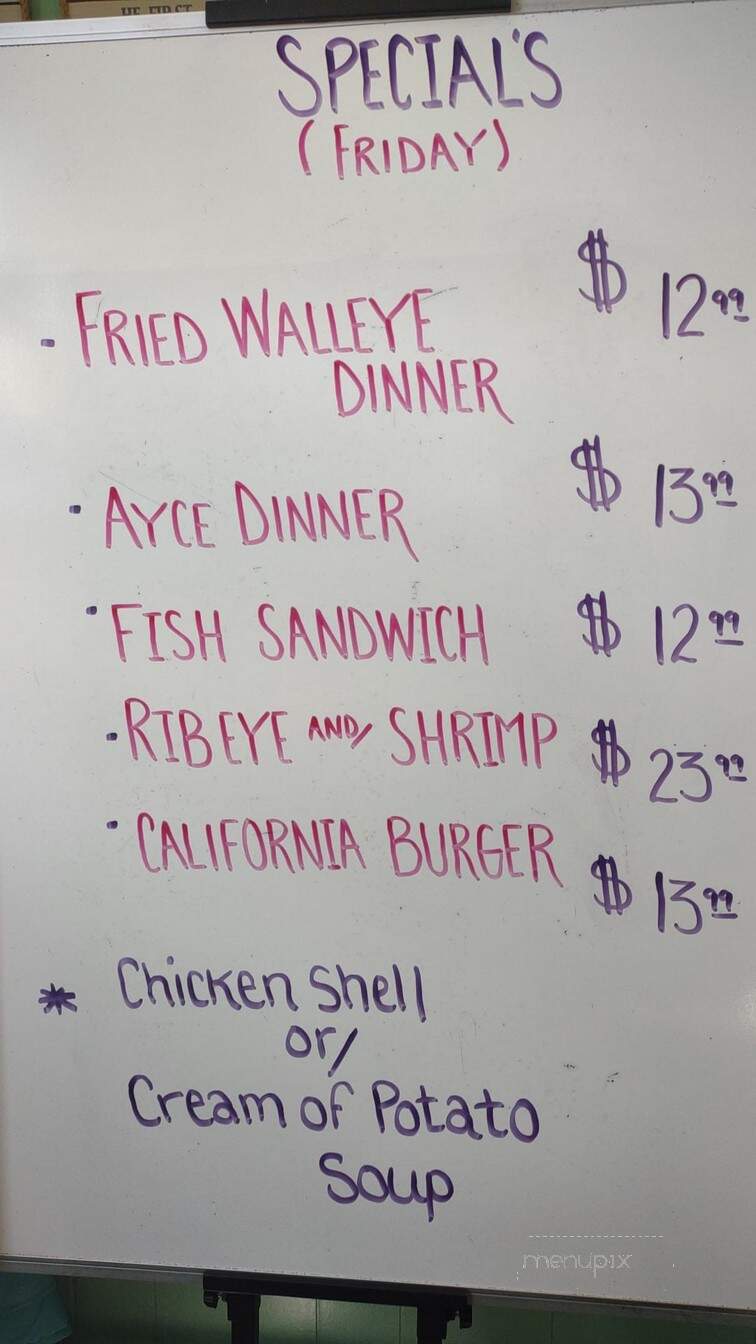 SPECIAL'S
(FRIDAY)
- FRIED WALLEYE $ 12.99
DINNER
- AYCE DINNER $ 13.99
- FISH SANDWICH $ 12.99
- RIBEYE AND/ SHRIMP $ 23.99
- CALIFORNIA BURGER $ 13.99
* Chicken Shell
or/
Cream of Potato
Soup
menupix